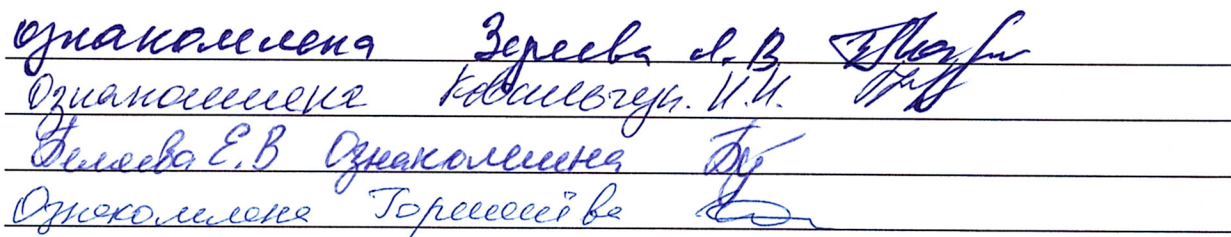 ознакомлена Зереева А.В.
Ознакомлена Ковальчук И.И.
Беляева Е.В Ознакомлена
Ознакомлена